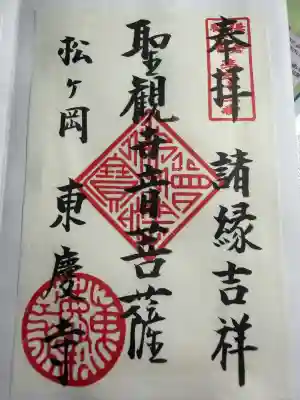 奉拝 諸縁吉祥
聖観世音菩薩
松ヶ岡 東慶寺